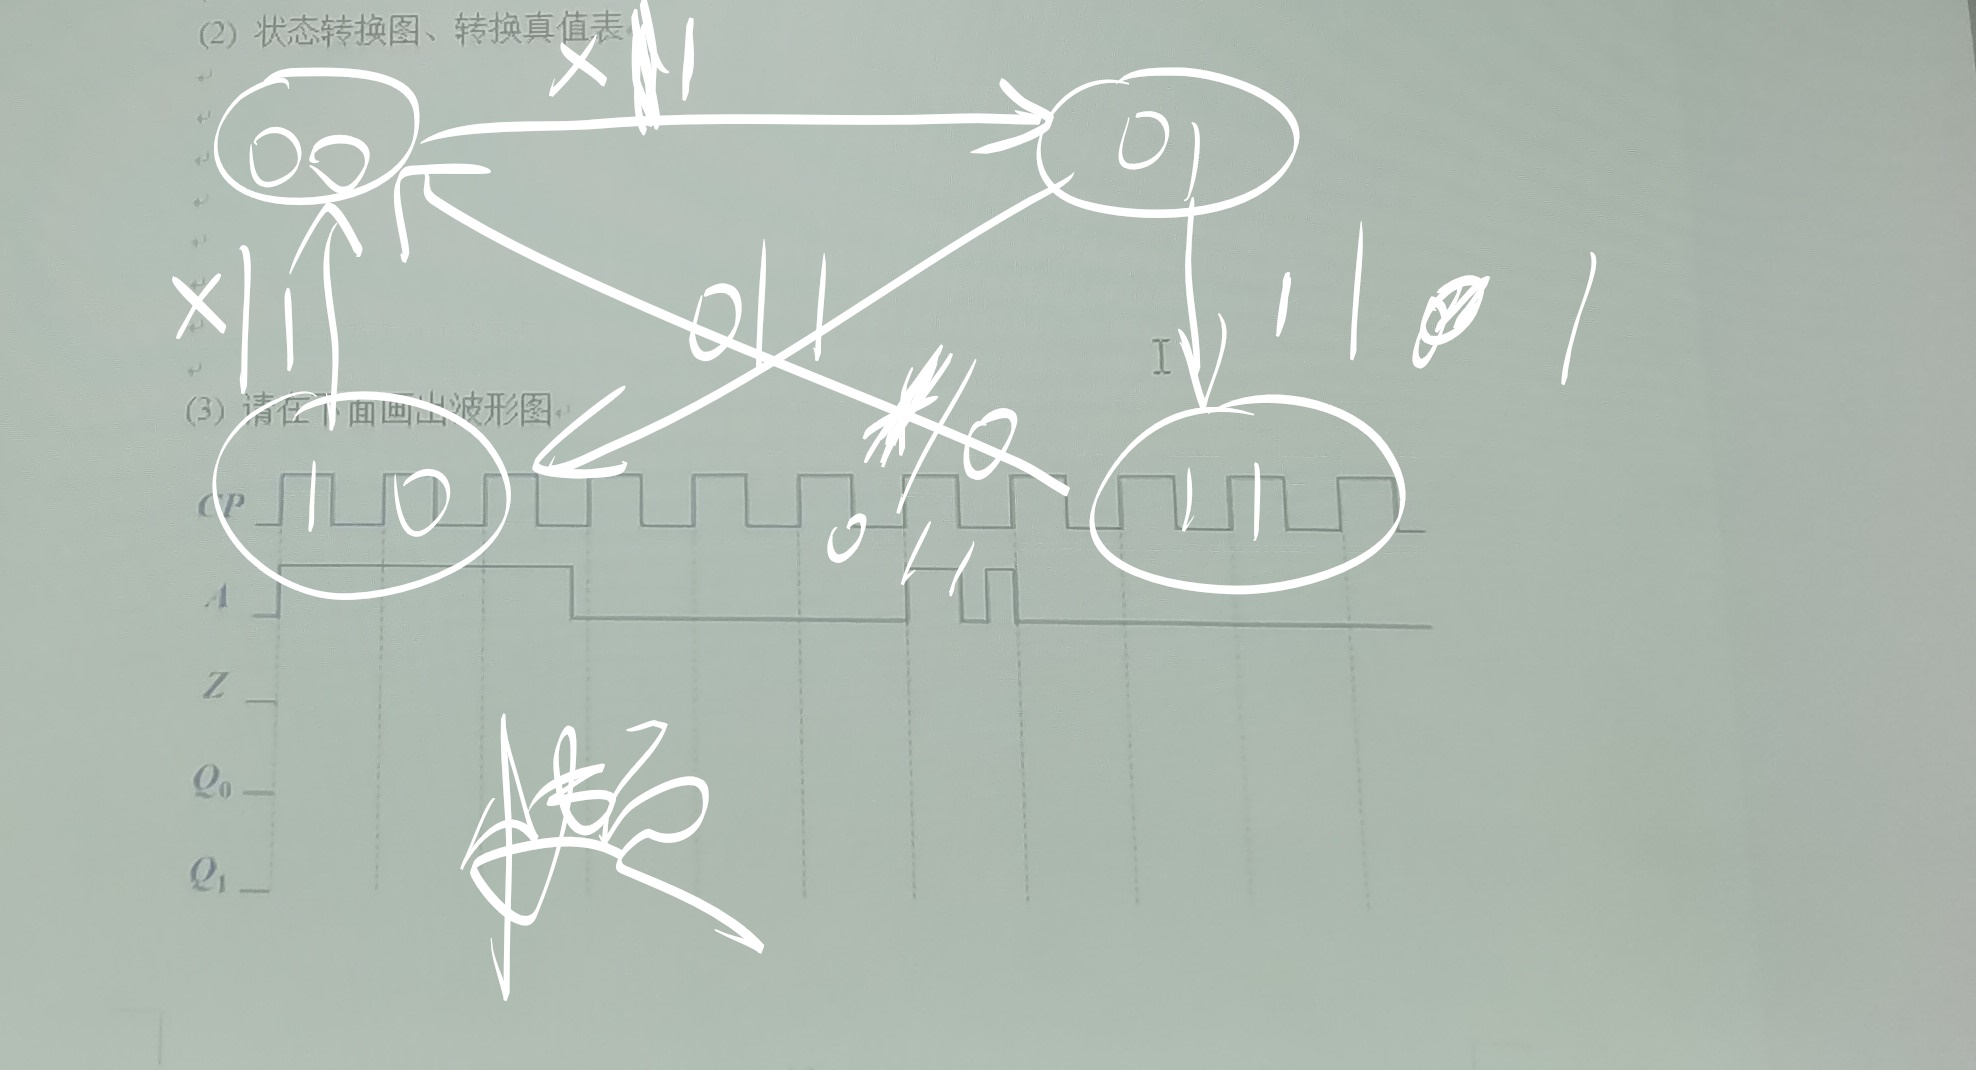 (2) 状态转换图、转换真值表
X 1
00
01
X|1
0||
1| 1
(3) 请在下面画出波形图
/0
10
11
CP
0//
A
Z
Q₀
Q₁